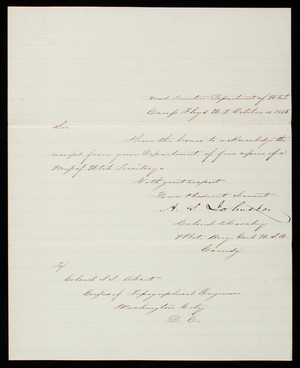 Head Quarters Department of Utah
Camp Floyd U.T. October 15 1858
Sir
I have the honor to acknowledge the
receipt from your Department of five copies of a
Map of Utah Territory.
With great respect
Your Obedient Servant
A. S. Johnston
Colonel 2d Cavalry
& Bvt. Brig. Genl. U.S.A.
Comdg
To
Colonel J. J. Abert
Corps of Topographical Engineers
Washington City
D. C.